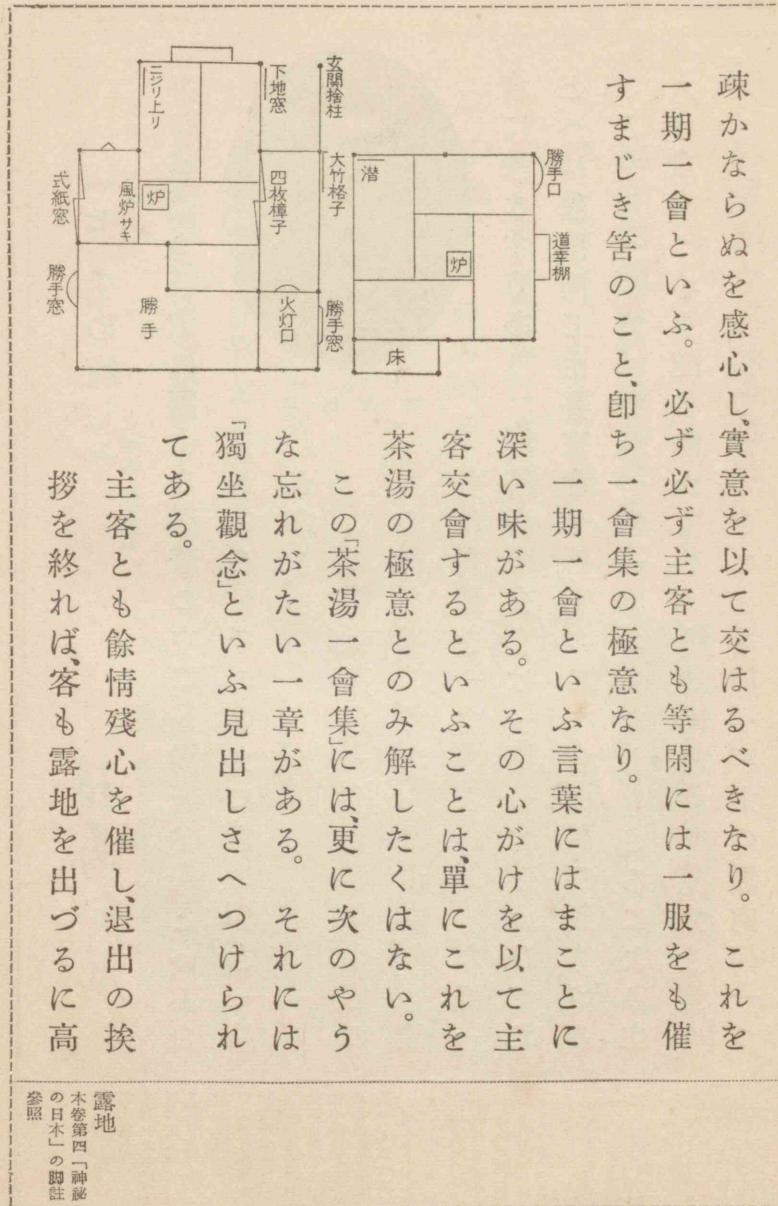 疎かならぬを感心し、實意を以て交はるべきなり。これを
一期一會といふ。必ず必ず主客とも等閑には一服をも催
すまじき筈のこと、卽ち一會集の極意なり。
一期一會といふ言葉にはまことに
深い味がある。その心がけを以て主
客交會するといふことは、單にこれを
茶湯の極意とのみ解したくはない。
この「茶湯一會集」には、更に次のやう
な忘れがたい一章がある。それには
「獨坐觀念」といふ見出しさへつけられ
てある。
主客とも餘情殘心を催し、退出の挨
拶を終れば、客も露地を出づるに高
勝手口
道幸棚
潜
炉
床
玄関捨柱
大竹格子
勝手窓
下地窓
四枚樟子
火灯口
ニジリ上リ
炉
風炉サキ
勝手
式紙窓
勝手窓
露地
本卷第四「神祕
の日本」の脚註
參照